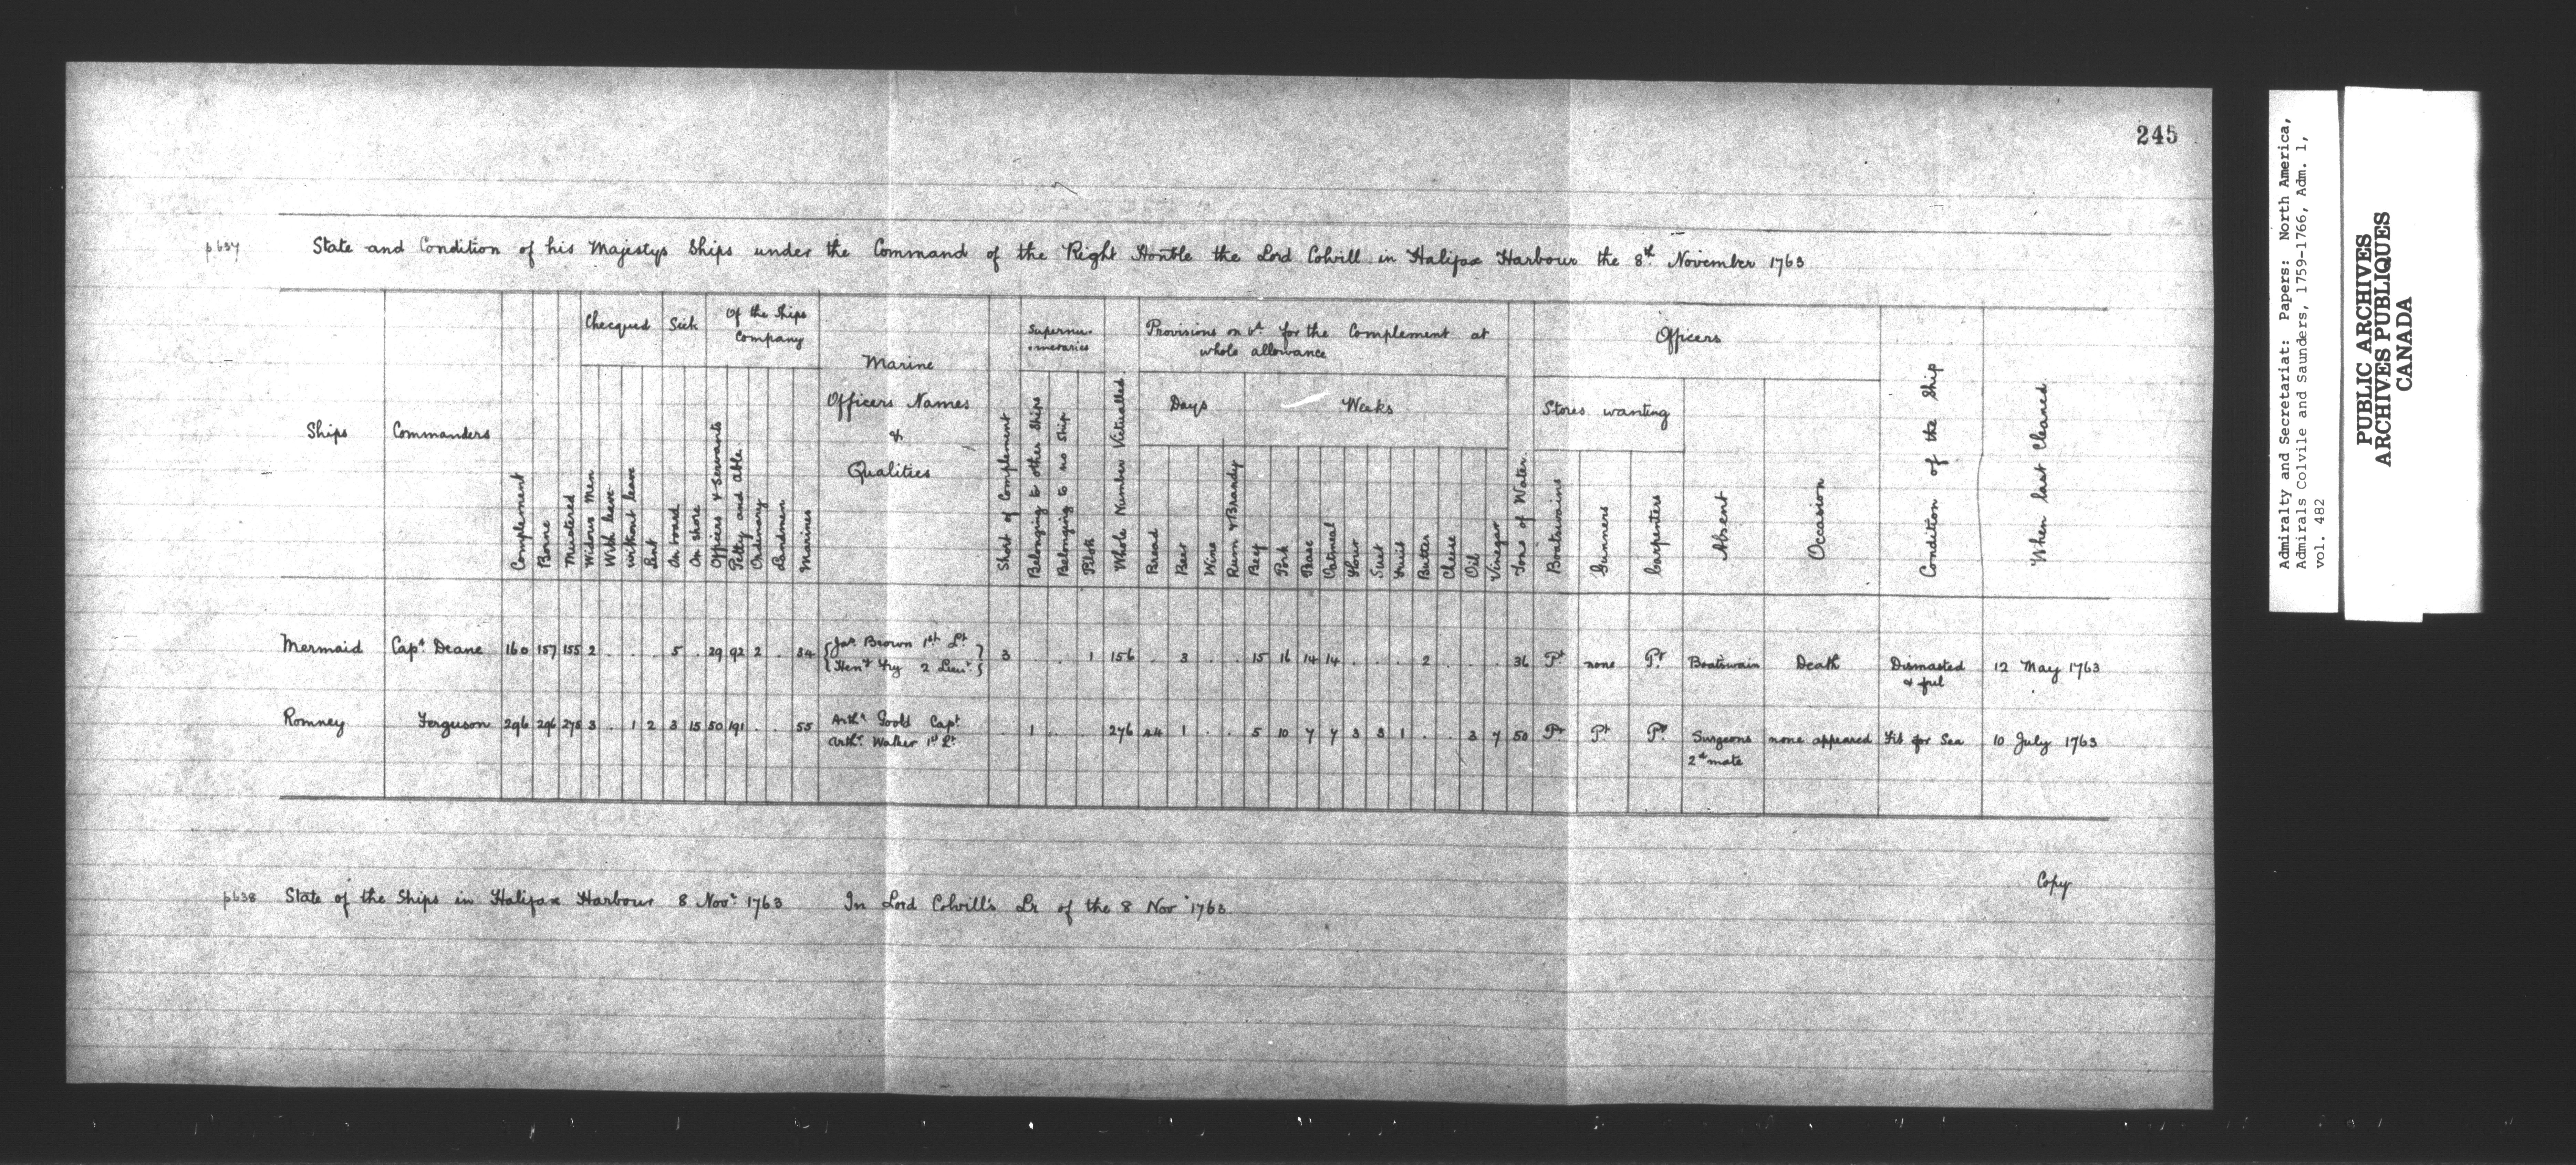 245
p637 State and Condition of his Majestys Ships under the Command of the Right Honble the Lord Colvill in Halifax Harbour the 8th November 1763
Ships
Commanders
Complement
Borne
Mustered
Checqued
Widows Men
With leave
without leave
Lent
Sick
On board
On shore
Of the Ships
Company
Officers & Servants
Petty and Able
Ordinary
Landmen
Marines
Marine
Officers Names
&
Qualities
Short of Complement
Supernu-
-meraries
Belonging to other Ships
Belonging to no Ship
Pilots
Whole Number Victualled
Provisions on bd for the Complement at
whole allowance
Days
Bread
Beer
Wine
Rum & Brandy
Weeks
Beef
Pork
Pease
Oatmeal
Flour
Suet
Fruit
Butter
Cheese
Oil
Vinegar
Tons of Water
Officers
Stores wanting
Boatswains
Gunners
Carpenters
Absent
Occasion
Condition of the Ship
When last Cleaned
Mermaid Capt. Deane 160 157 155 2 . . . 5 . 29 92 2 . 34 {Jas Brown 1st Lt.} 3 . . 1 156 . 3 . . 15 16 14 14 . . . 2 . . . 36 Pt none Pt. Boatswain Death Dismasted 12 May 1763
{Henr Fry 2 Lieut}
& foul
Romney Ferguson 296 296 275 3 . 1 2 3 15 50 191 . . 55 Arthr Goold Capt . 1 . . 276 44 1 . . 5 10 7 7 3 3 1 . . 3 7 50 Pt Pt Pt Surgeons none appeared Fit for Sea 10 July 1763
Arthr. Walker 1st Lt.
2d mate
Copy
p638 State of the Ships in Halifax Harbour 8 Novr 1763 In Lord Colvill's Lr of the 8 Nov 1763
Admiralty and Secretariat: Papers: North America,
Admirals Colvile and Saunders, 1759-1766, Adm. 1,
vol. 482
PUBLIC ARCHIVES
ARCHIVES PUBLIQUES
CANADA